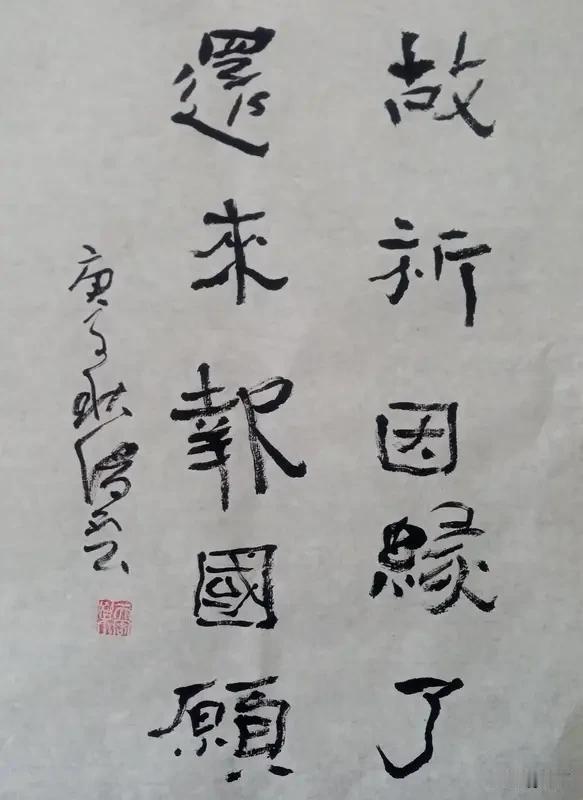 故新因緣了
還來報國願
庚子秋